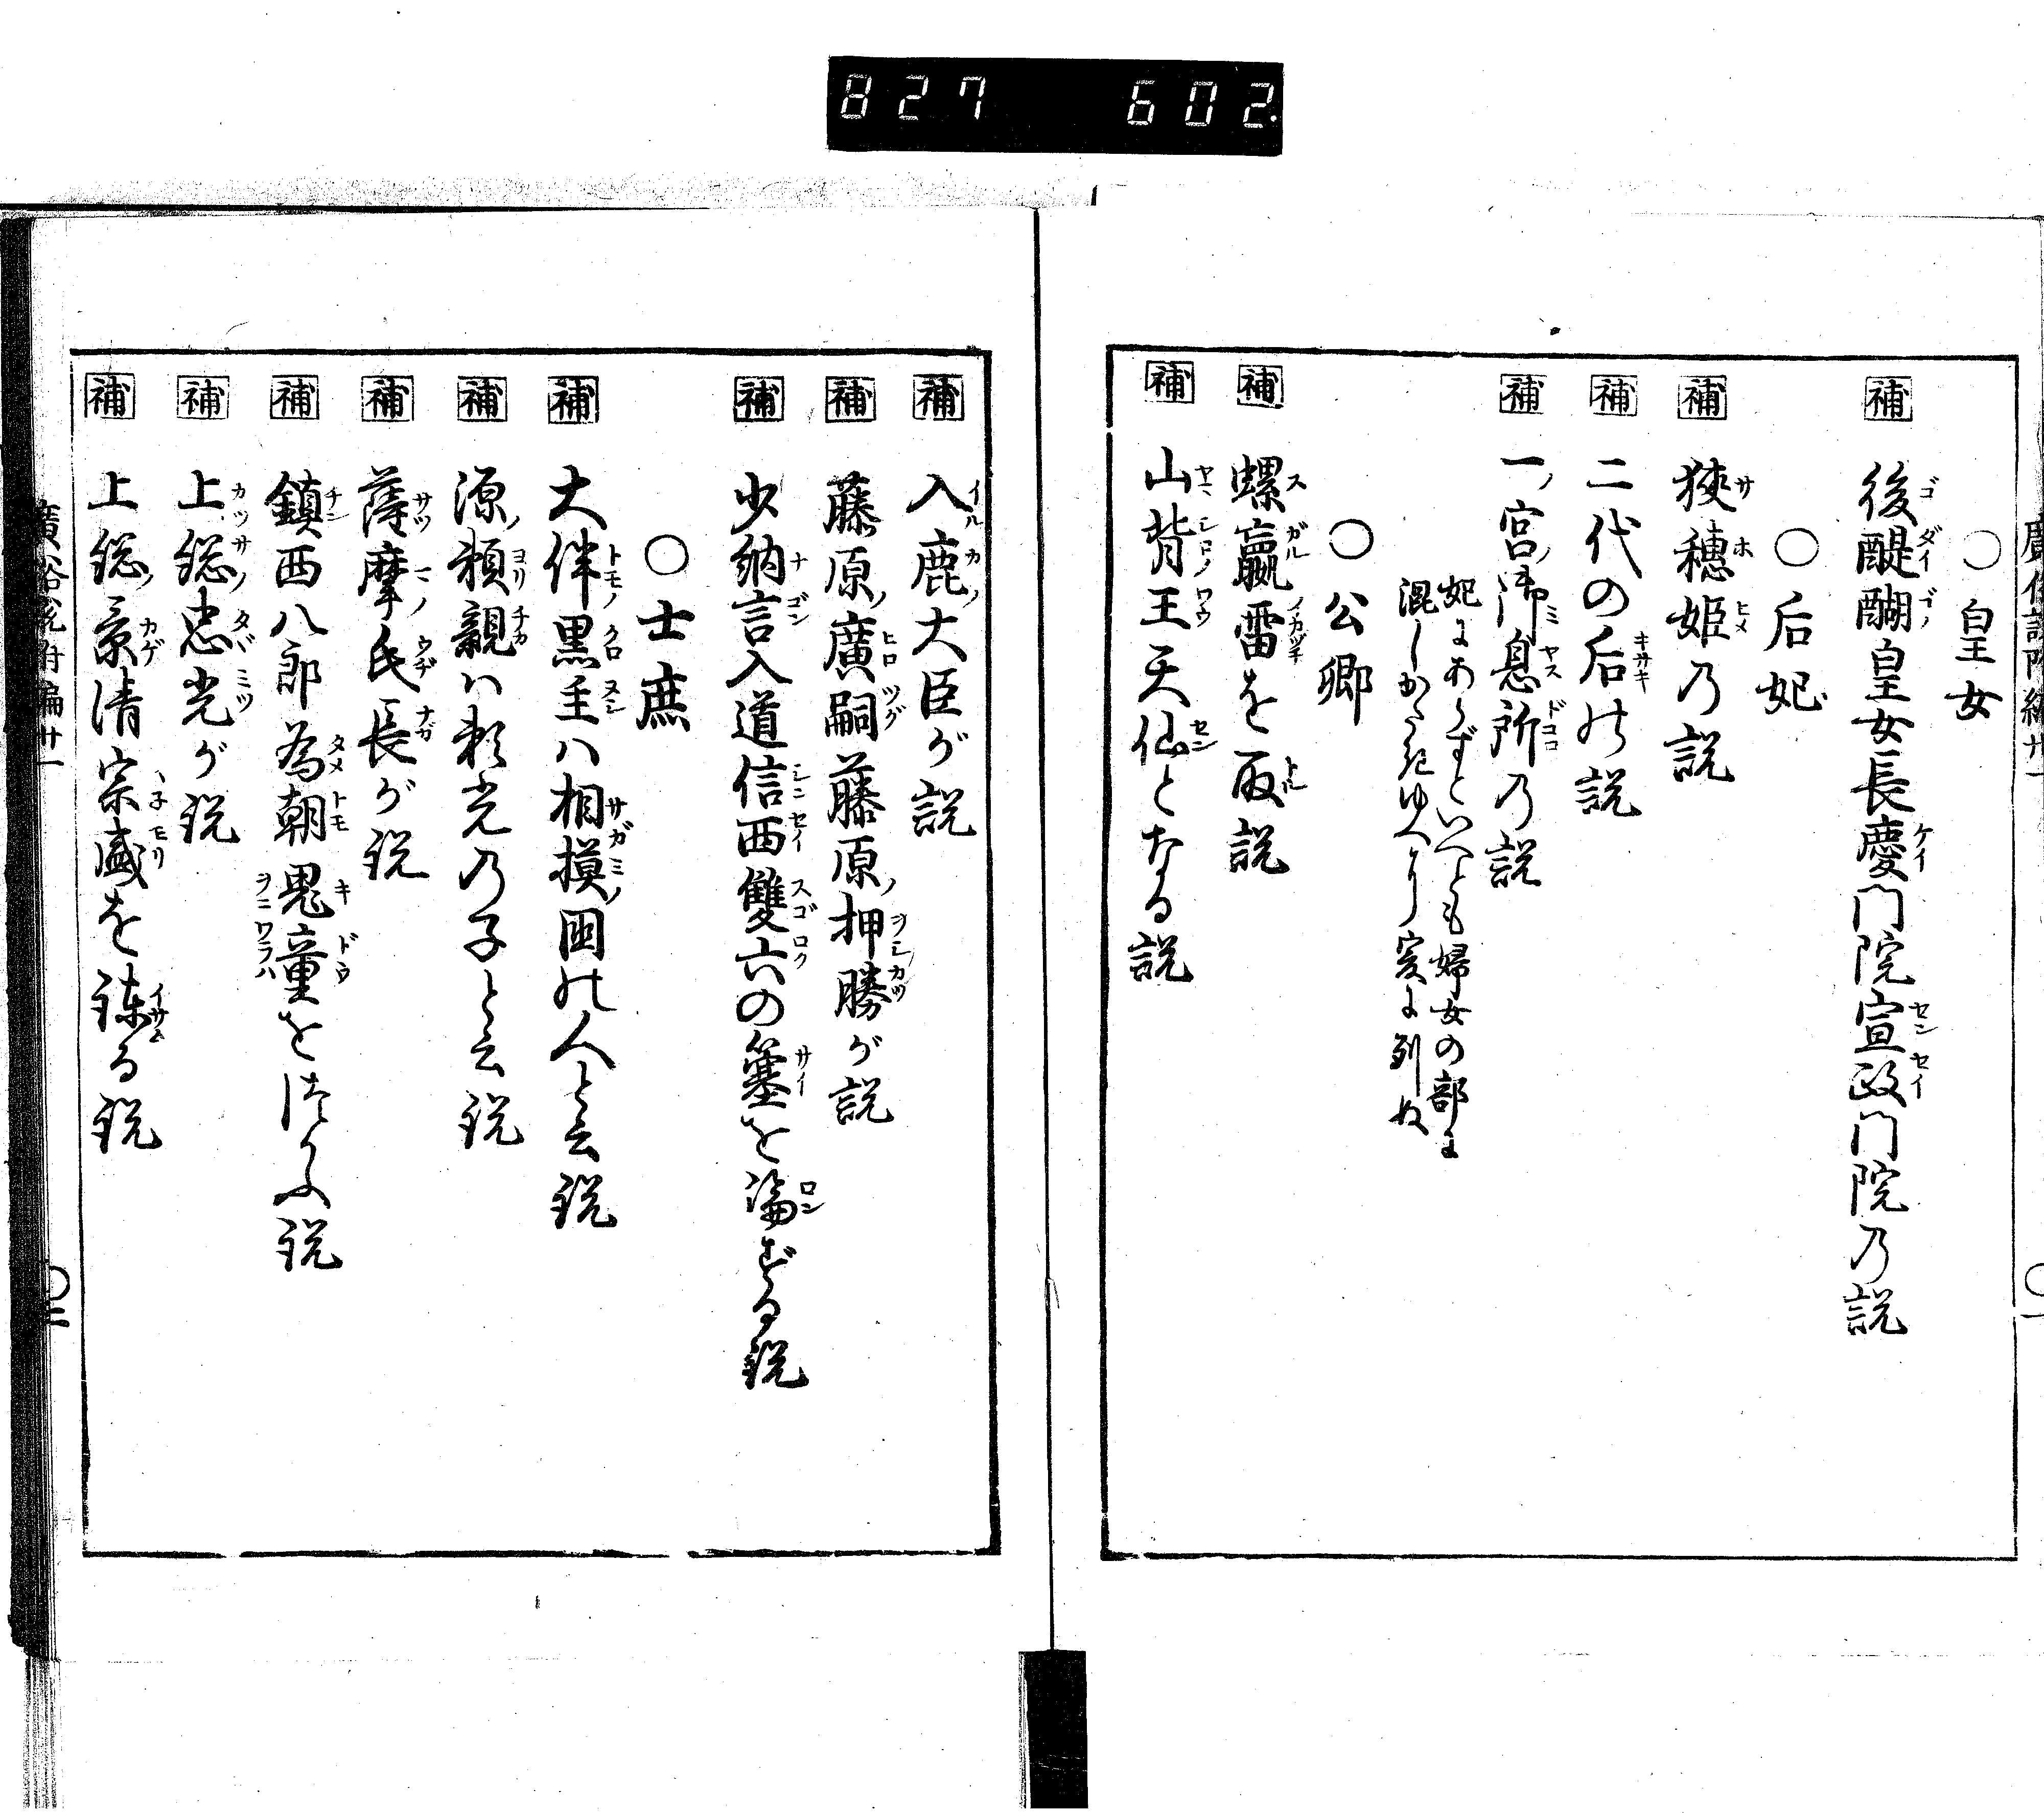 827 602
○皇女
補 後醍醐皇女長慶門院宣政門院乃説
○后妃
補 狹穗姫乃説
補 二代の后の説
補 一ノ宮ノ御息所乃説
妃にあらずといへども婦女の部に
混しがたきゆへに爰に列ぬ
○公卿
補 螺蠃雷を取説
補 山背王天仙となる説
補 入鹿大臣が説
補 藤原ノ廣嗣藤原ノ押勝が説
補 少納言入道信西雙六の簺を論ずる説
○士庶
補 大伴黒主ハ相摸ノ国の人と云説
補 源ノ頼親ハ頼光乃子と云説
補 薩摩氏長が説
補 鎮西八郎為朝鬼童をつかふ説
補 上総忠光が説
補 上総ノ景清宗盛を諌る説
廣俗説附編廿一 ○二